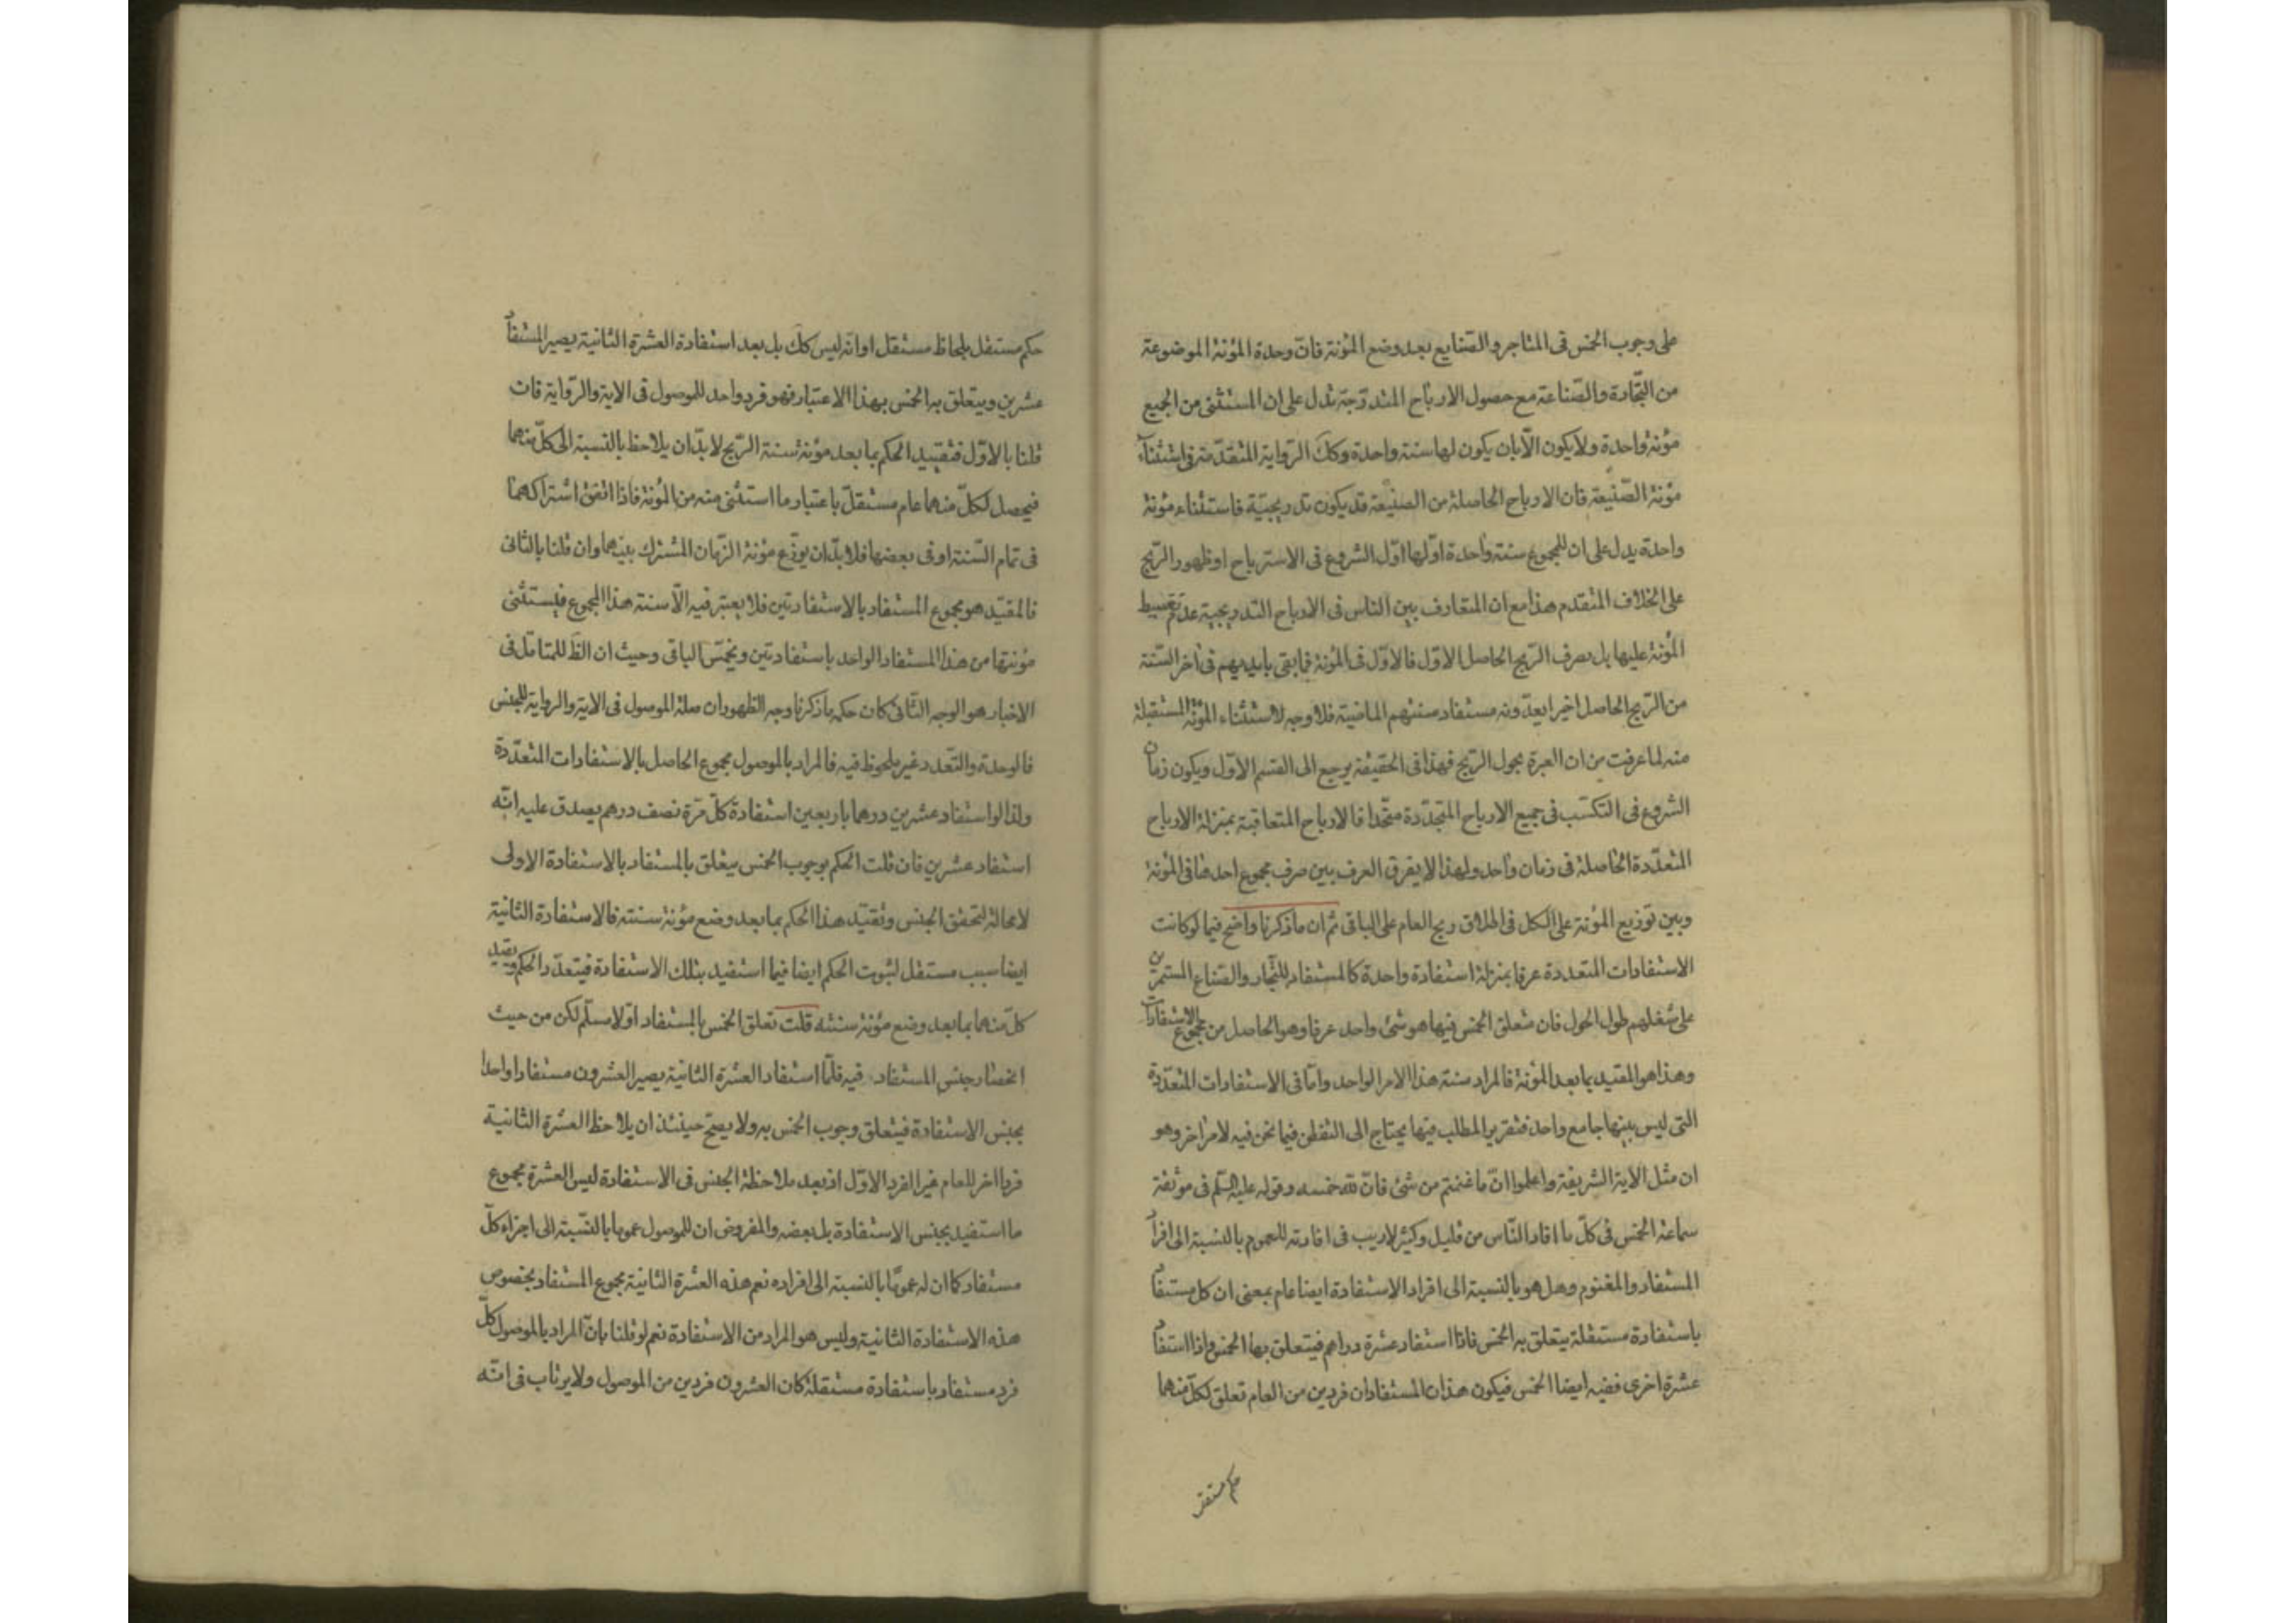 على وجوب الخمس فى المتاجر والصّنايع بعد وضع المؤنة فانّ وحدة المؤنة الموضوعة
من التّجارة والصّناعة مع حصول الارباح المتدرّجة تدل على ان المستثنى من الجميع
مؤنة واحدة ولا يكون الّا بان يكون لها سنة واحدة وكك الرّواية المتقدّمة فى استثناء
مؤنة الضّيعة فان الارباح الحاصلة من الضيعة قد يكون تدريجيّة فاستثناء مؤنة
واحدة يدل على ان للمجموع سنة واحدة اوّلها اوّل الشروع فى الاسترباح او ظهور الرّبح
على الخلاف المتقدم هذا مع ان المتعارف بين الناس فى الارباح التدريجية عدم تقسيط
المؤنة عليها بل يصرف الرّبح الحاصل الاوّل فالاوّل فى المؤنة فما بقى بايديهم فى اخر السّنة
من الرّبح الحاصل اخيرا يعدّونه مستفاد سنتهم الماضية فلا وجه لاستثناء المؤنة المستقبلة
منه لما عرفت من ان العبرة بحول الرّبح فهذا فى الحقيقة يرجع الى القسم الاوّل ويكون زمان
الشروع فى التكسّب فى جميع الارباح المتجدّدة متّحدا فالارباح المتعاقبة بمنزلة الارباح
المتعدّدة الحاصلة فى زمان واحد ولهذا لا يفرق العرف بين صرف مجموع احدها فى المؤنة
وبين توزيع المؤنة على الكل فى اطلاق ربح العام على الباقى ثم ان ما ذكرنا واضح فيما لو كانت
الاستفادات المتعددة عرفا بمنزلة استفادة واحدة كالمستفاد للتّجار والصّناع المستمرّين
على شغلهم طول الحول فان متعلق الخمس فيها هو شئ واحد عرفا وهو الحاصل من مجموع الاستفادات
وهذا هو المقيد بما بعد المؤنة فالمراد سنة هذا الامر الواحد وامّا فى الاستفادات المتعدّدة
التى ليس بينها جامع واحد فتقرير المطلب فيها يحتاج الى التفطن فيما نحن فيه لامر اخر وهو
ان مثل الآية الشريفة واعلموا انّ ما غنمتم من شئ فانّ لله خمسه وقوله عليه السّلم فى موثقة
سماعة الخمس فى كلّ ما افاد النّاس من قليل وكثير لا ريب فى افادته للعموم بالنسبة الى افراد
المستفاد والمغنوم وهل هو بالنسبة الى افراد الاستفادة ايضا عام بمعنى ان كل مستفاد
باستفادة مستقلة يتعلق به الخمس فاذا استفاد عشرة دراهم فيتعلق بها الخمس واذا استفاد
عشرة اخرى ففيه ايضا الخمس فيكون هذان المستفادان فردين من العام تعلق لكلّ منهما
حكم مستقل
حكم مستقل بلحاظ مستقل او انه ليس كك بل بعد استفادة العشرة الثانية يصير المستفاد
عشرين ويتعلق به الخمس بهذا الاعتبار فهو فرد واحد للموصول فى الاية والرّواية فان
قلنا بالاوّل فتقييد الحكم بما بعد مؤنة سنة الرّبح لا بدّ ان يلاحظ بالنسبة الى كلّ منهما
فيحصل لكلّ منهما عام مستقلّ باعتبار ما استثنى منه من المؤنة فاذا اتفق اشتراكهما
فى تمام السّنة او فى بعضها فلا بدّ ان يوزّع مؤنة الزّمان المشترك بينهما وان قلنا بالثانى
فالمقيّد هو مجموع المستفاد بالاستفادتين فلا يعتبر فيه الّا سنة هذا المجموع فيستثنى
مؤنتها من هذا المستفاد الواحد باستفادتين ويخمّس الباقى وحيث ان الظ للمتامّل فى
الاخبار هو الوجه الثّانى كان حكمه ما ذكرنا وجه الظهور ان صلة الموصول فى الاية والرواية للجنس
فالوحدة والتّعدد غير ملحوظ فيه فالمراد بالموصول مجموع الحاصل بالاستفادات المتعدّدة
ولذا لو استفاد عشرين درهما باربعين استفادة كلّ مرّة نصف درهم يصدق عليه انّه
استفاد عشرين فان قلت الحكم بوجوب الخمس يتعلق بالمستفاد بالاستفادة الاولى
لا محالة لتحقق الجنس وتقيّد هذا الحكم بما بعد وضع مؤنة سنته فالاستفادة الثانية
ايضا سبب مستقل لثبوت الحكم ايضا فيما استفيد بتلك الاستفادة فيتعدّد الحكم ويقيد
كلّ منهما بما بعد وضع مؤنة سنته قلت تعلق الخمس بالمستفاد اوّلا مسلّم لكن من حيث
انحصار جنس المستفاد فيه فلمّا استفاد العشرة الثانية يصير العشرون مستفادا واحدا
بجنس الاستفادة فيتعلق وجوب الخمس به ولا يصحّ حينئذ ان يلاحظ العشرة الثانية
فردا اخر للعام غير الفرد الاوّل اذ بعد ملاحظة الجنس فى الاستفادة ليس العشرة مجموع
ما استفيد بجنس الاستفادة بل بعضه والمفروض ان للموصول عموما بالنّسبة الى اجزاء كلّ
مستفاد كما ان له عمومًا بالنسبة الى افراده نعم هذه العشرة الثانية مجموع المستفاد بخصوص
هذه الاستفادة الثانية وليس هو المراد من الاستفادة نعم لو قلنا بانّ المراد بالموصول كلّ
فرد مستفاد باستفادة مستقلة كان العشرون فردين من الموصول ولا يرتاب فى انّه